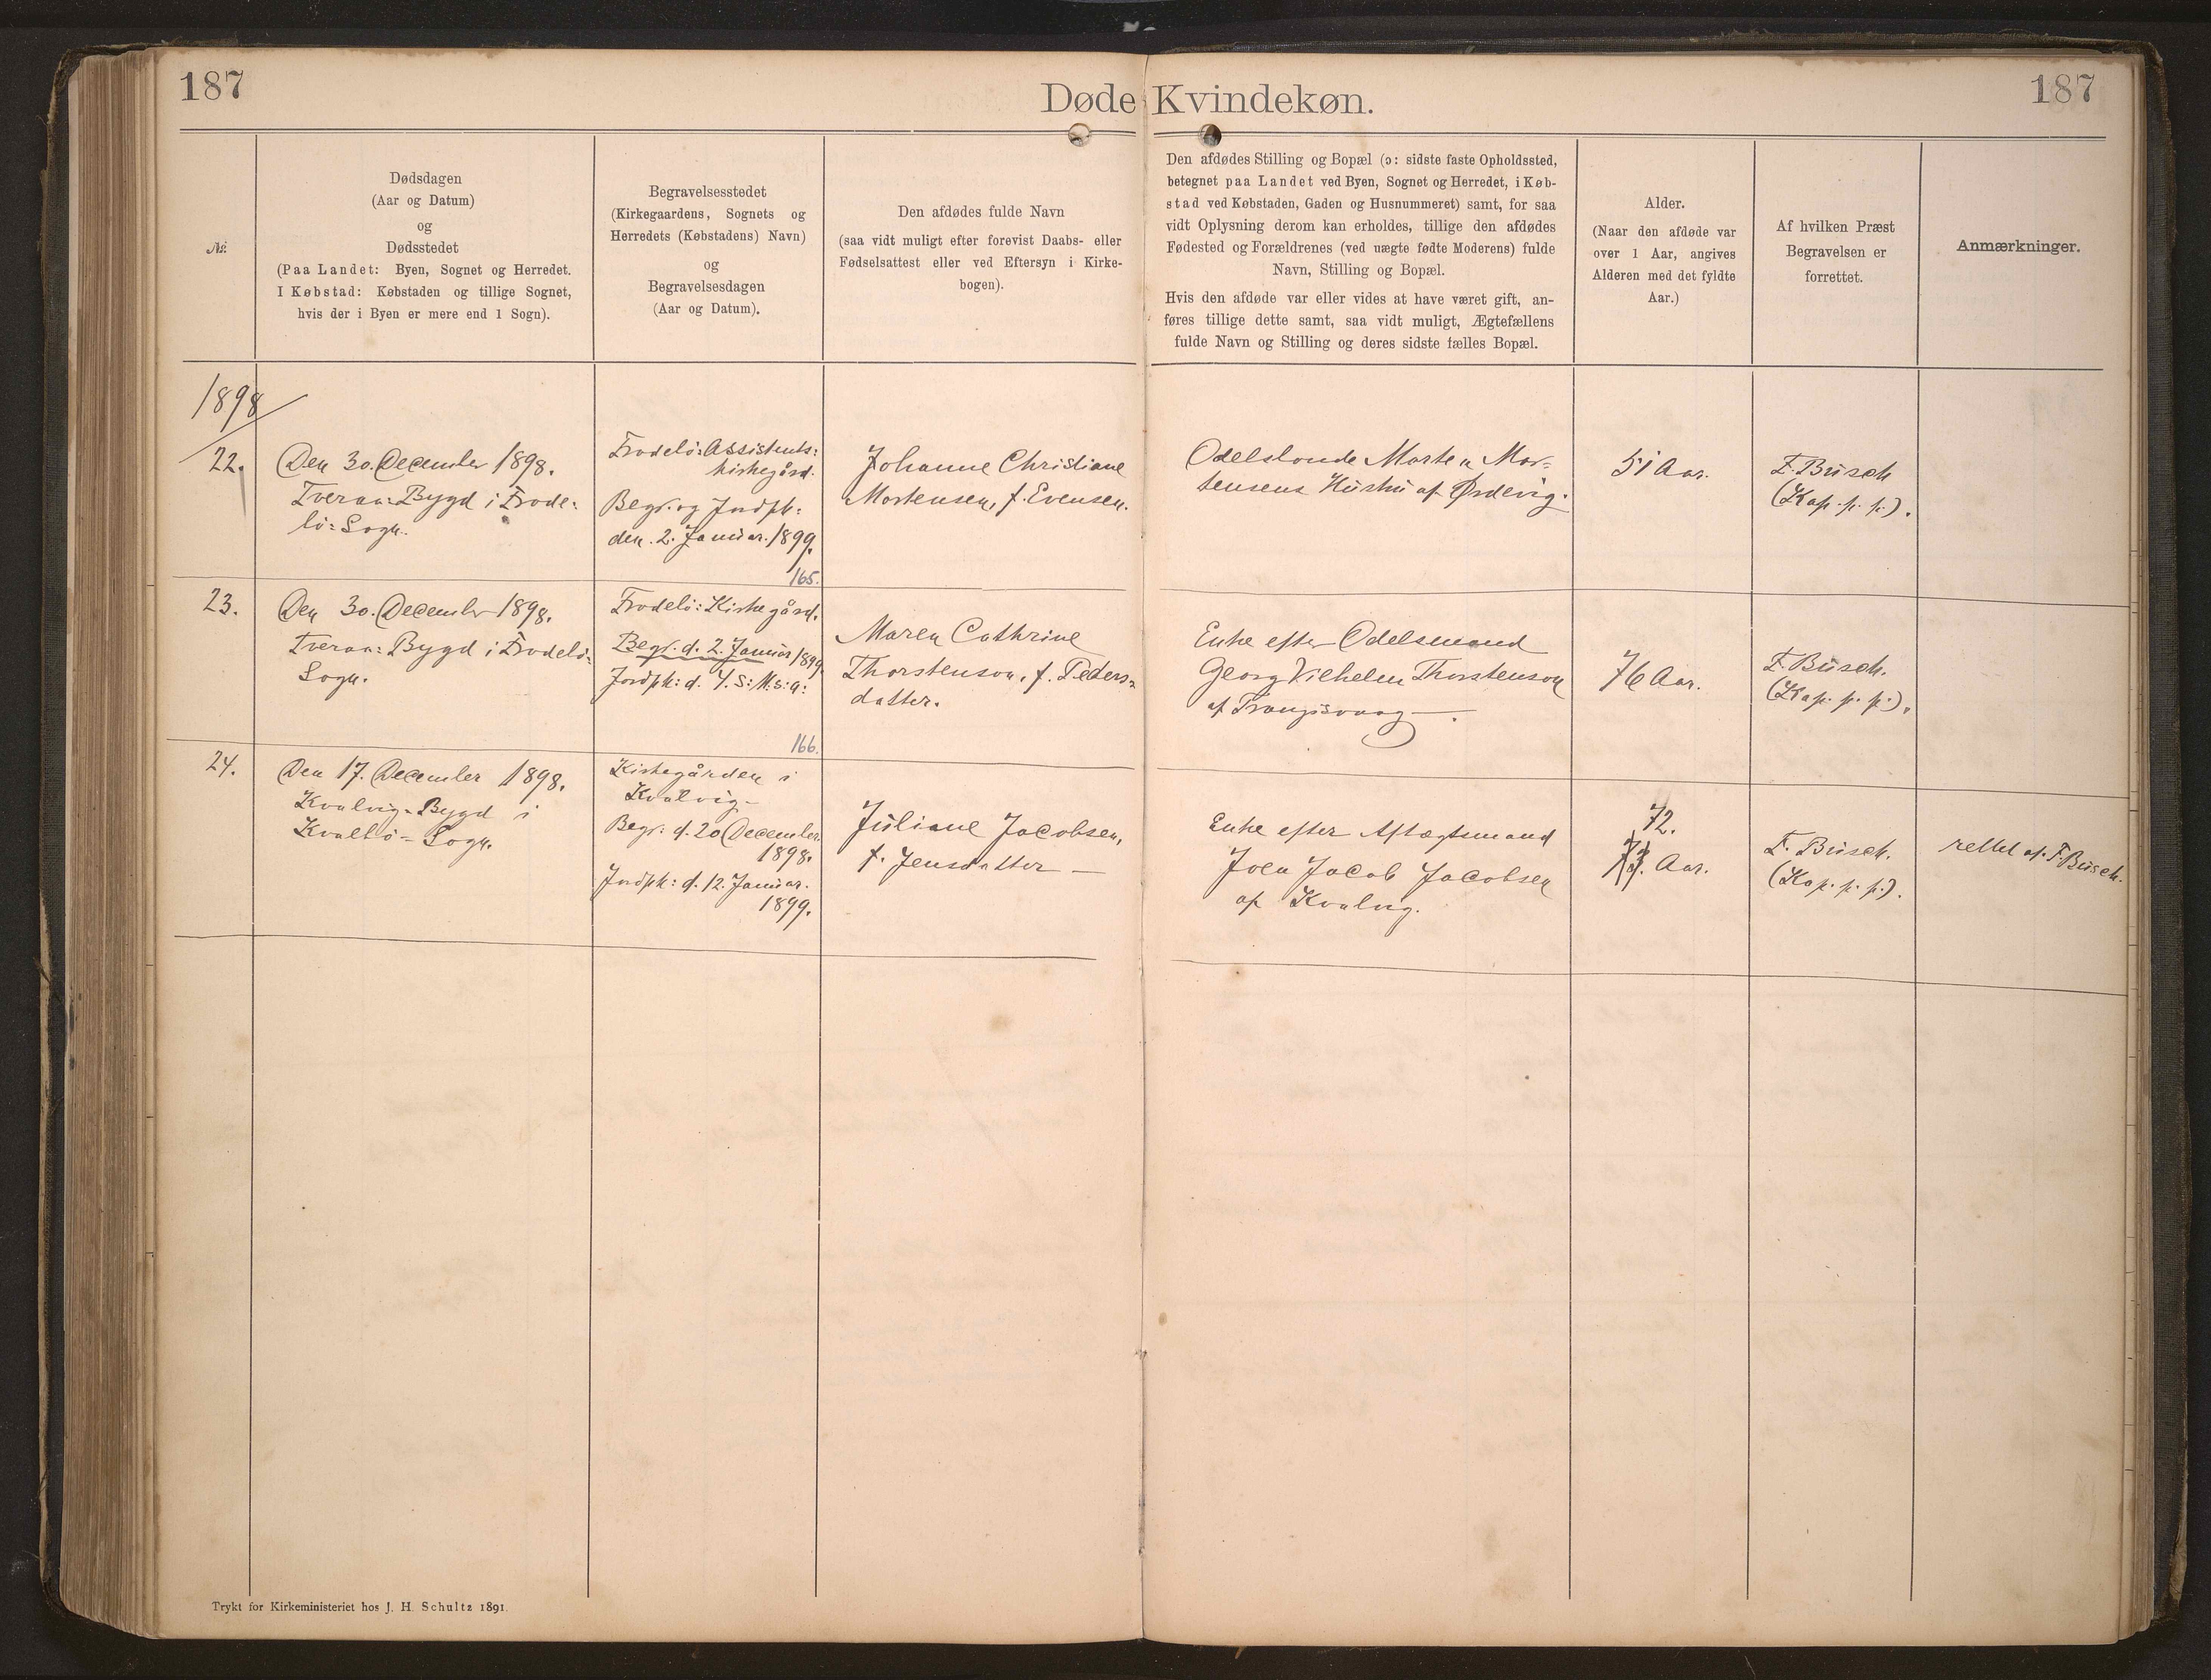 187
187
Døde Kvindekøn.
№
Dødsdagen
(Aar og Datum)
og
Dødsstedet
(Paa Landet: Byen, Sognet og Herredet.
I Købstad: Købstaden og tillige Sognet,
hvis der i Byen er mere end 1 Sogn).
Begravelsesstedet
(Kirkegaardens, Sognets og
Herredets (Købstadens) Navn)
og
Begravelsesdagen
(Aar og Datum).
Den afdødes fulde Navn
(saa vidt muligt efter forevist Daabs- eller
Fødselsattest eller ved Eftersyn i Kirke-
bogen).
Den afdødes Stilling og Bopæl (ɔ: sidste faste Opholdssted,
betegnet paa Landet ved Byen, Sognet og Herredet, i Køb-
stad ved Købstaden, Gaden og Husnummeret) samt, for saa
vidt Oplysning derom kan erholdes, tillige den afdødes
Fødested og Forældrenes (ved uægte fødte Moderens) fulde
Navn, Stilling og Bopæl.
Hvis den afdøde var eller vides at have været gift, an-
føres tillige dette samt, saa vidt muligt, Ægtefællens
fulde Navn og Stilling og deres sidste fælles Bopæl.
Alder.
(Naar den afdøde var
over 1 Aar, angives
Alderen med det fyldte
Aar.)
Af hvilken Præst
Begravelsen er
forrettet.
Anmærkninger.
1898
22.
Den 30. December 1898.
Tveraa: Bygd i Frode:
bö: Sogn.
Frodebö: Assistents:
kirkegård.
Begr. og Jordpk:
den. 2. Januar. 1899.
165.
Johanne Christiane
Mortensen, f. Evensen.
Odelsbonde Morten Mor=
tensens Hustru af Ørdevig.
51 Aar.
F. Busch
(Kap. p. p.).
23.
Den 30. December 1898.
Tveraa: Bygd i Frodebö:
Sogn.
Frodebö: Kirkegård.
Begr. d. 2. Januar 1899
Jordpk: d. 4. s: M: s: a:
166.
Maren Cathrine
Thorstenson, f. Peders=
datter.
Enke efter Odelsmand
Georg Vilhelm Thorstenson
af Trangisvaag.
76 Aar.
F. Busch.
(Kap. p. p.).
24.
Den 17. December 1898.
Kvalvig-Bygd i
Kvalbö-Sogn.
Kirkegården i
Kvalvig-
Begr: d. 20 December
1898.
Jordpk: d. 12. Januar.
1899.
Juliane Jacobsen,
f. Jensdatter —
Enke efter Aftægtsmand
Joen Jacob Jacobsen
af Kvalvig.
72.
Aar.
F. Busch.
(Kap. p. p.).
rettet af. F. Busch.
Trykt for Kirkeministeriet hos J. H. Schultz 1891.